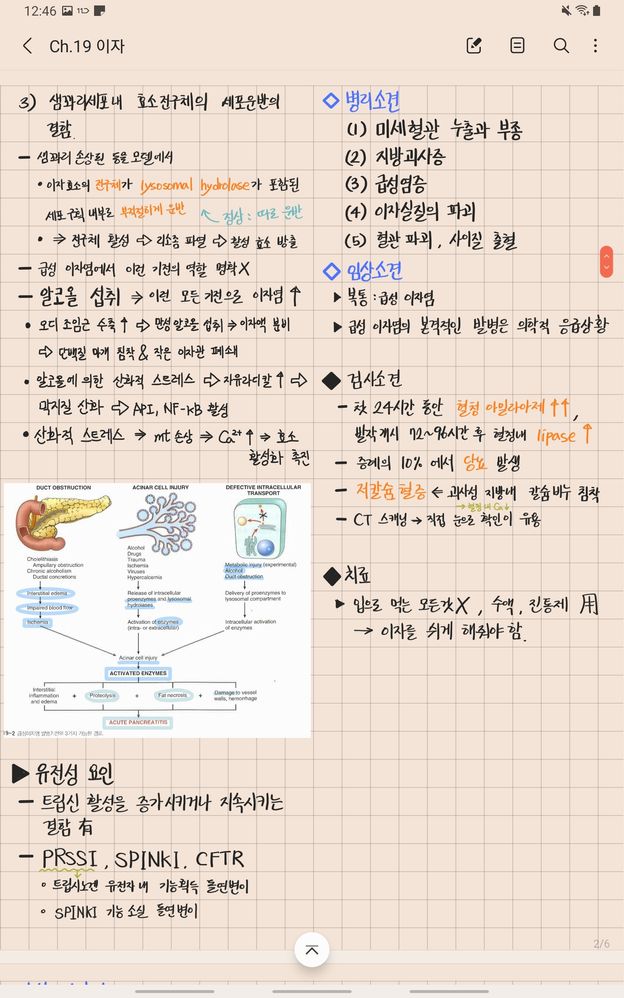 12:46
Ch.19 이자
3) 샘꽈리세포내 효소전구체의 세포운반의
결함.
- 샘꽈리 손상된 동물 모델에서
• 이자효소의 전구체가 lysosomal hydrolase가 포함된
세포 구획 내부로 부적절하게 운반 ← 정상 : 따로 운반
• ⇒ 전구체 활성 ⇨ 리소좀 파열 ⇨ 활성 효소 방출
- 급성 이자염에서 이런 기전의 역할 명확X
- 알코올 섭취 → 이런 모든 기전으로 이자염 ↑
• 오디 조임근 수축 ↑ ⇨ 만성 알코올 섭취 → 이자액 분비
⇨ 단백질 마개 침착 & 작은 이자관 폐쇄
• 알코올에 의한 산화적 스트레스 ⇨ 자유라디칼 ↑ ⇨
막지질 산화 ⇨ AP1, NF-kB 활성
• 산화적 스트레스 ⇒ mt 손상 ⇒ Ca²⁺ ↑ ⇒ 효소
활성화 촉진
DUCT OBSTRUCTION
Cholelithiasis
Ampullary obstruction
Chronic alcoholism
Ductal concretions
Interstitial edema
Impaired blood flow
Ischemia
ACINAR CELL INJURY
Alcohol
Drugs
Trauma
Ischemia
Viruses
Hypercalcemia
Release of intracellular
proenzymes and lysosomal
hydrolases
Activation of enzymes
(intra- or extracellular)
DEFECTIVE INTRACELLULAR
TRANSPORT
Metabolic injury (experimental)
Alcohol
Duct obstruction
Delivery of proenzymes to
lysosomal compartment
Intracellular activation
of enzymes
Acinar cell injury
ACTIVATED ENZYMES
Interstitial
inflammation
and edema
+ Proteolysis + Fat necrosis +
Damage to vessel
walls, hemorrhage
ACUTE PANCREATITIS
19-2 급성이자염 발병기전의 3가지 가능한 경로.
▶ 유전성 요인
- 트립신 활성을 증가시키거나 지속시키는
결함 有
- PRSS1, SPINK1, CFTR
• 트립시노겐 유전자 내 기능획득 돌연변이
• SPINK1 기능 소실 돌연변이
◇ 병리소견
(1) 미세혈관 누출과 부종
(2) 지방괴사증
(3) 급성염증
(4) 이자실질의 파괴
(5) 혈관 파괴, 사이질 출혈
◇ 임상소견
▶ 복통 : 급성 이자염
▶ 급성 이자염의 본격적인 발병은 의학적 응급상황
◆ 검사소견
- 첫 24시간 동안 혈청 아밀라아제 ↑↑,
발작개시 72~96시간 후 혈청내 lipase ↑
- 증례의 10% 에서 당뇨 발생
- 저칼슘 혈증 ← 괴사성 지방내 칼슘비누 침착
→ 혈청 내 Ca↓
- CT 스캐닝 → 직접 눈으로 확인이 유용
◆ 치료
▶ 입으로 먹는 모든것X, 수액, 진통제 用
→ 이자를 쉬게 해줘야 함.
2/6